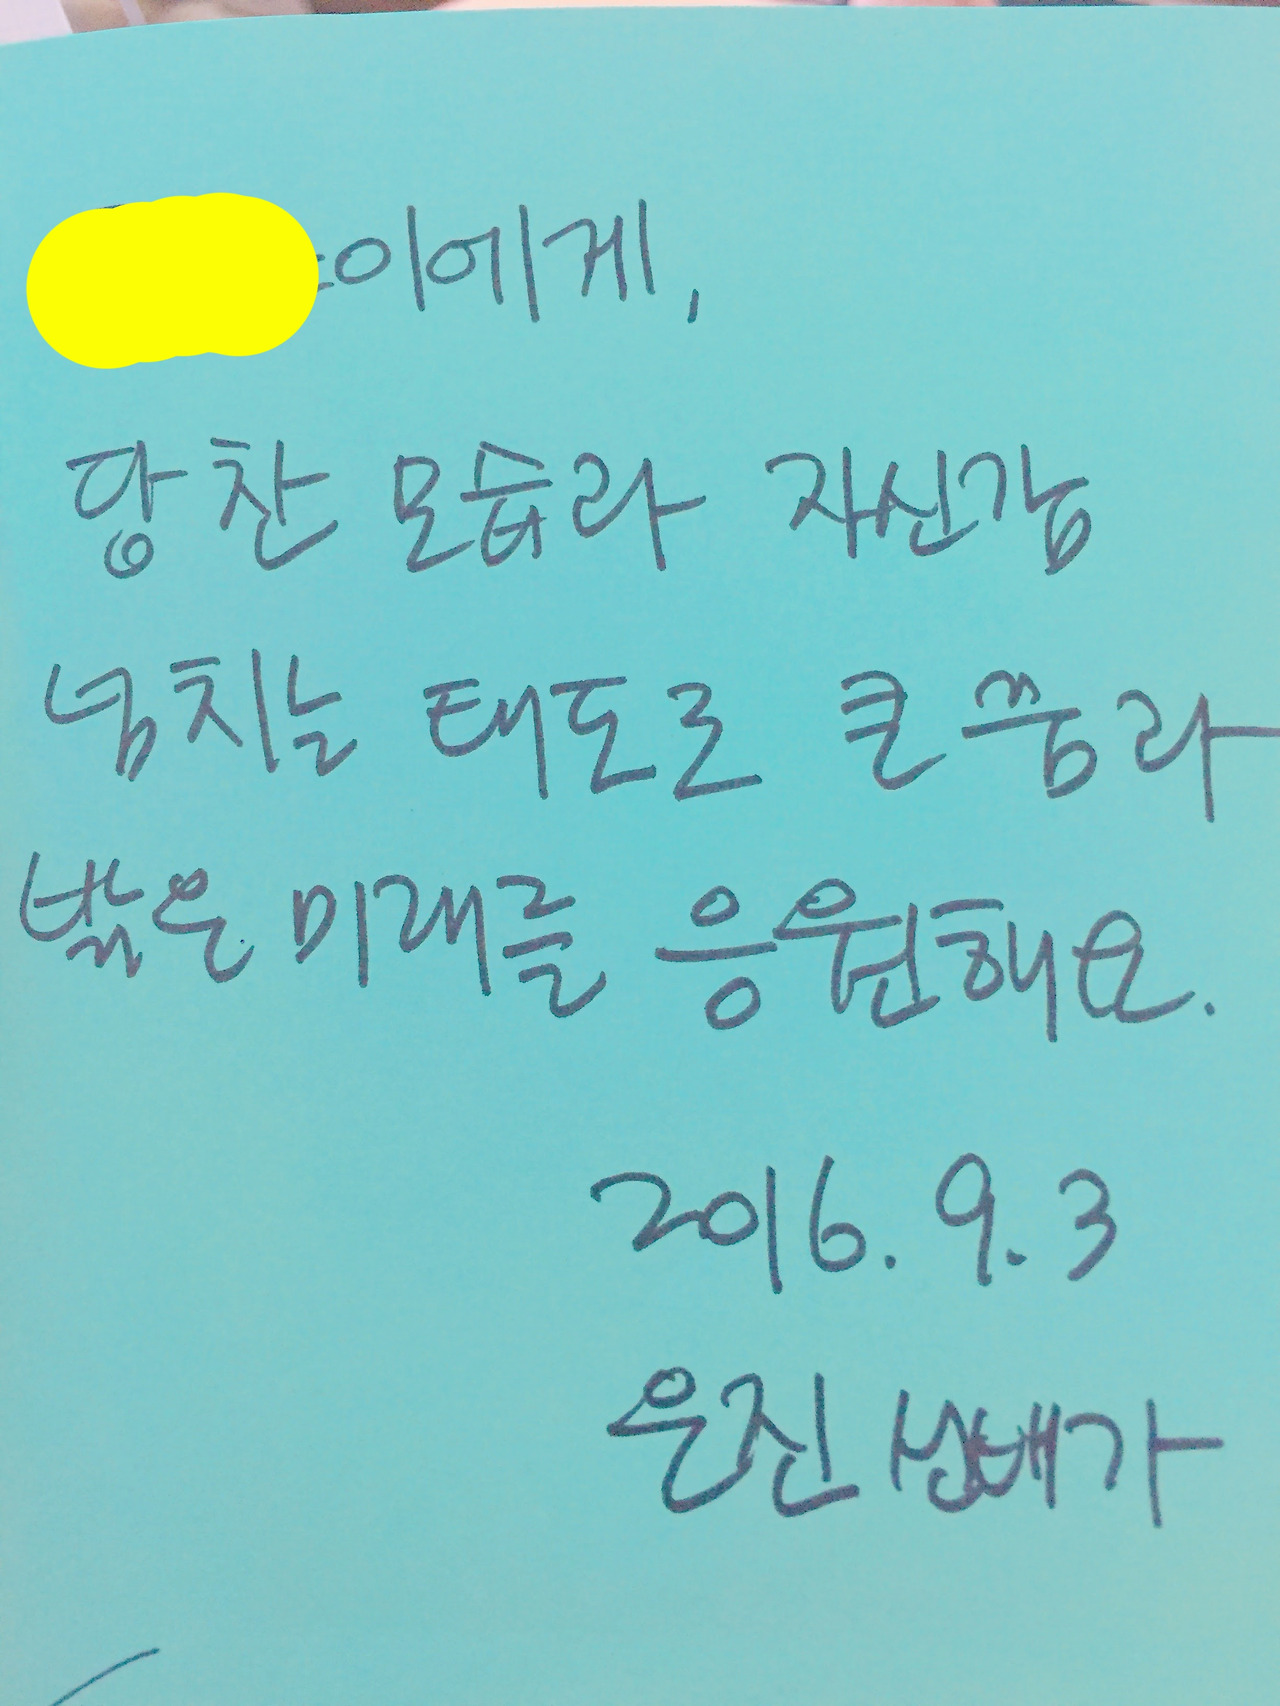 이에게,
당찬 모습과 자신감
넘치는 태도로 큰 꿈과
밝은 미래를 응원해요.
2016. 9. 3
은진 선배가